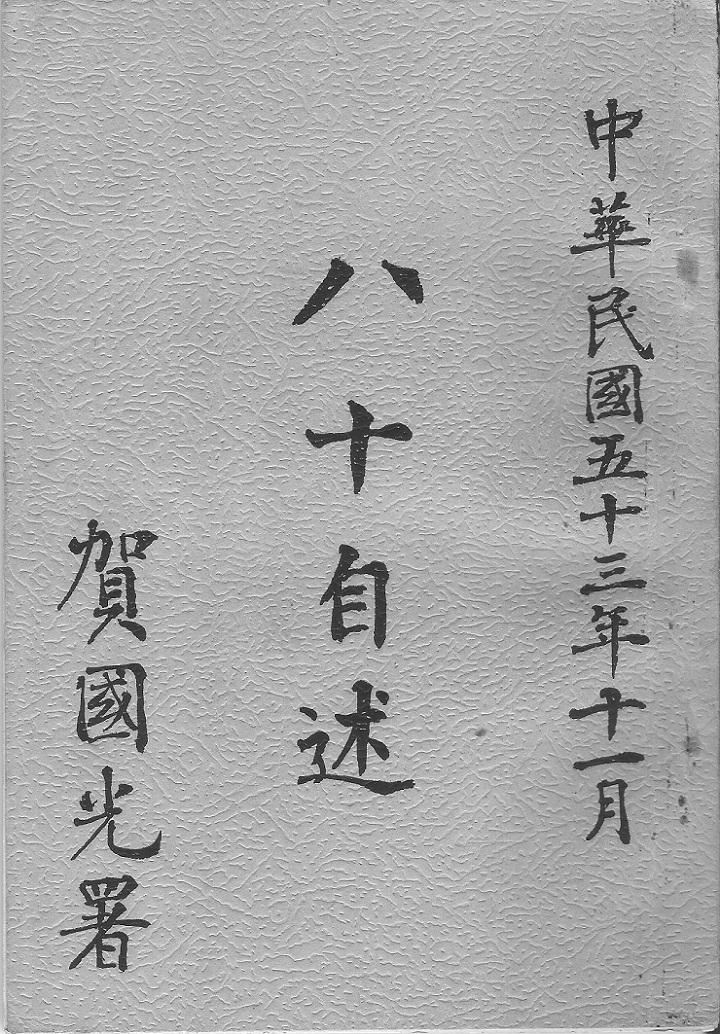 中華民國五十三年十一月
八十自述
賀國光署